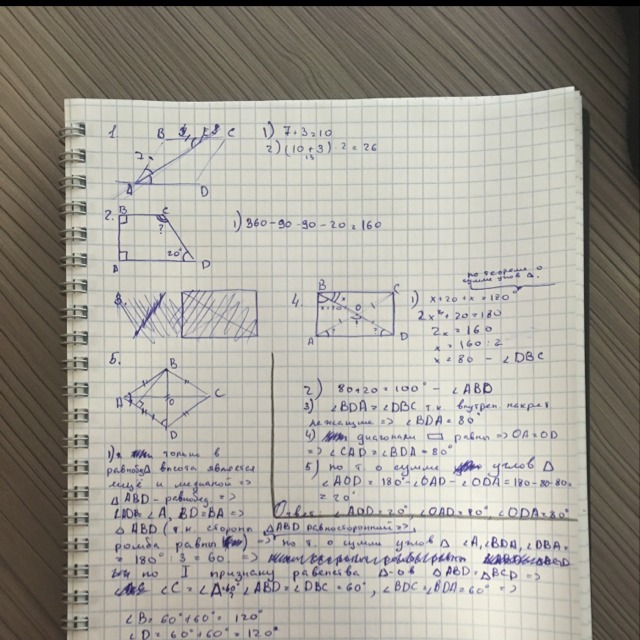 1.
B
C
7
A
D
1) 7+3=10
2) (10+3)·2=26
2.
B
C
?
20°
A
D
1) 360-90-90-20=160
4.
B
C
O
A
D
по теореме о
сумме углов Δ.
1) x+20+x=180°
2x+20=180
2x=160
x=160:2
x=80 - ∠DBC
2) 80+20=100° - ∠ABD
3) ∠BDA=∠DBC т.к. внутрен накрест
лежащие => ∠BDA=80°
4) диагонали ▭ равны => OA=OD
=> ∠CAD=∠BDA=80°
5) по т. о сумме углов Δ
∠AOD=180°-∠OAD-∠ODA=180-80-80=
=20°
Ответ: ∠AOD=20°, ∠OAD=80°, ∠ODA=80°
5.
B
A
O
C
D
1) только в
равнобед высота является
ещё и медианой =>
ΔABD - равнобед =>
∠A, BD=BA =>
ΔABD (т.к. сторона ΔABD равносторонний =>
ромба равно) => по т. о сумме углов Δ ∠A, ∠BDA, ∠DBA=
=180°:3=60° =>
по I признаку равенства Δ-ов ΔABD=ΔBCD =>
∠C=∠A, ∠ABD=∠DBC=60°, ∠BDC=∠BDA=60° =>
∠B=60°+60°=120°
∠D=60°+60°=120°